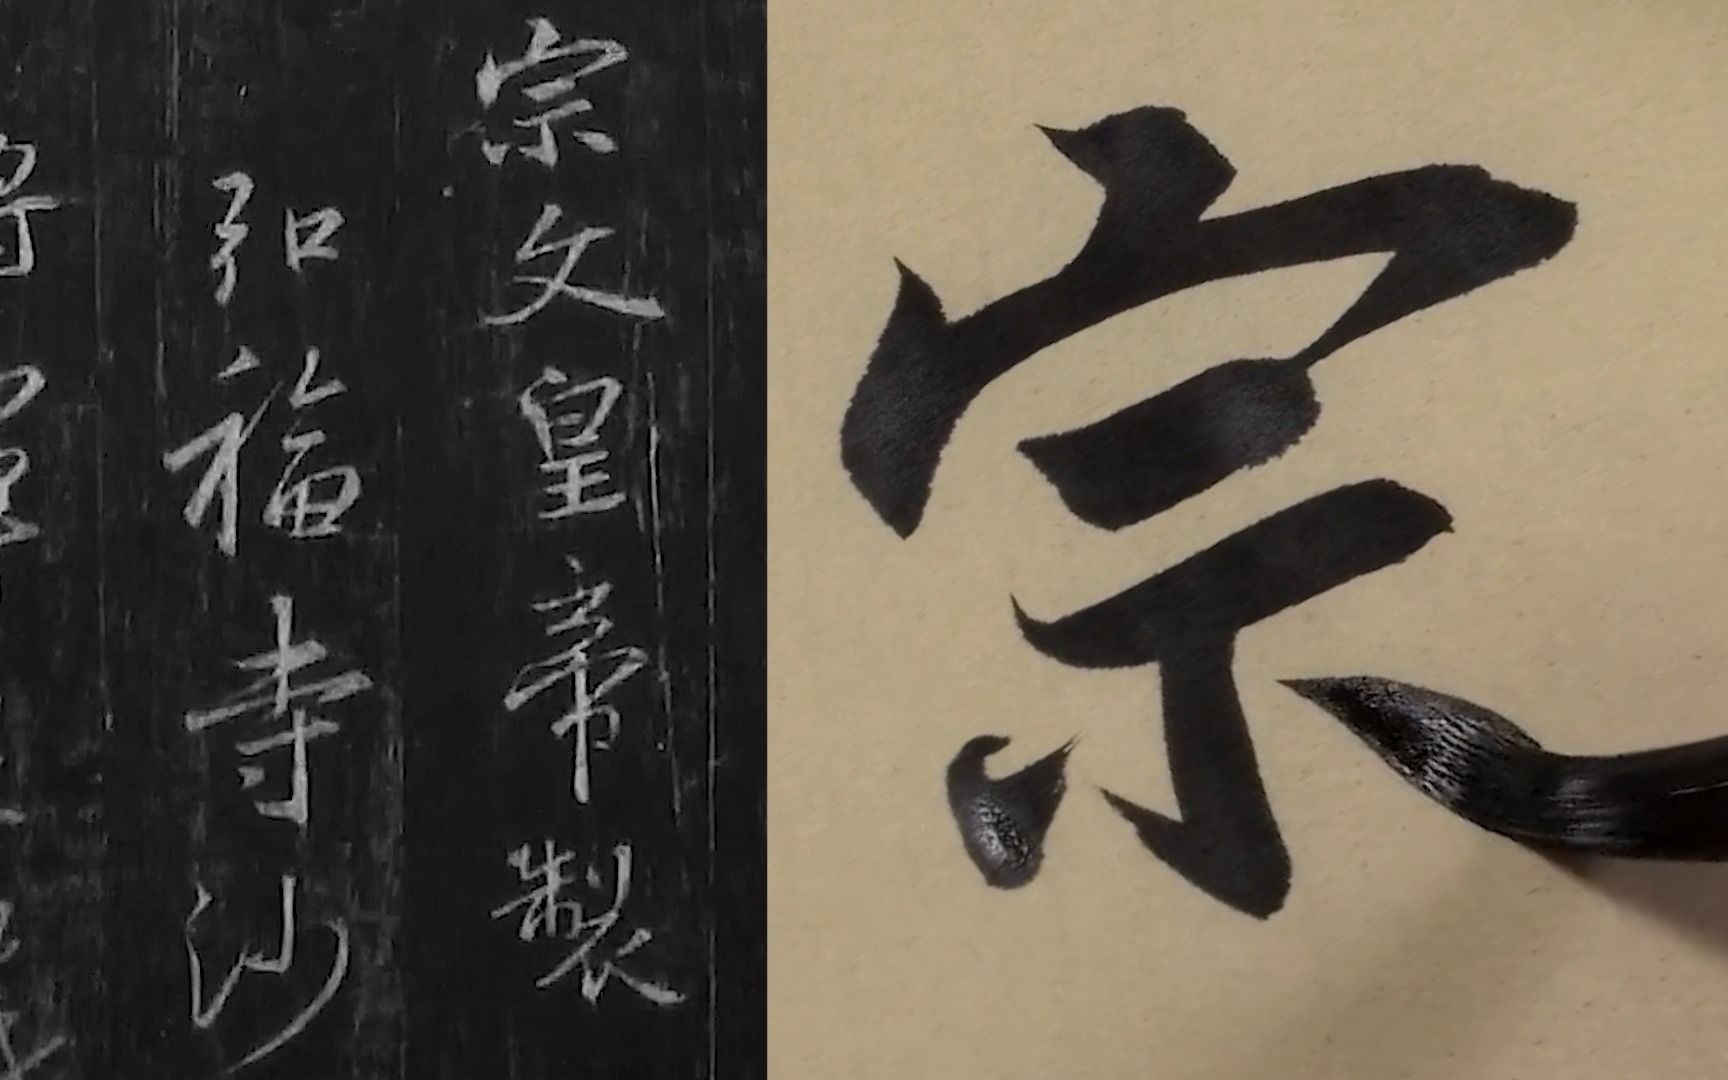 宗文皇帝製
弘福寺沙
宗